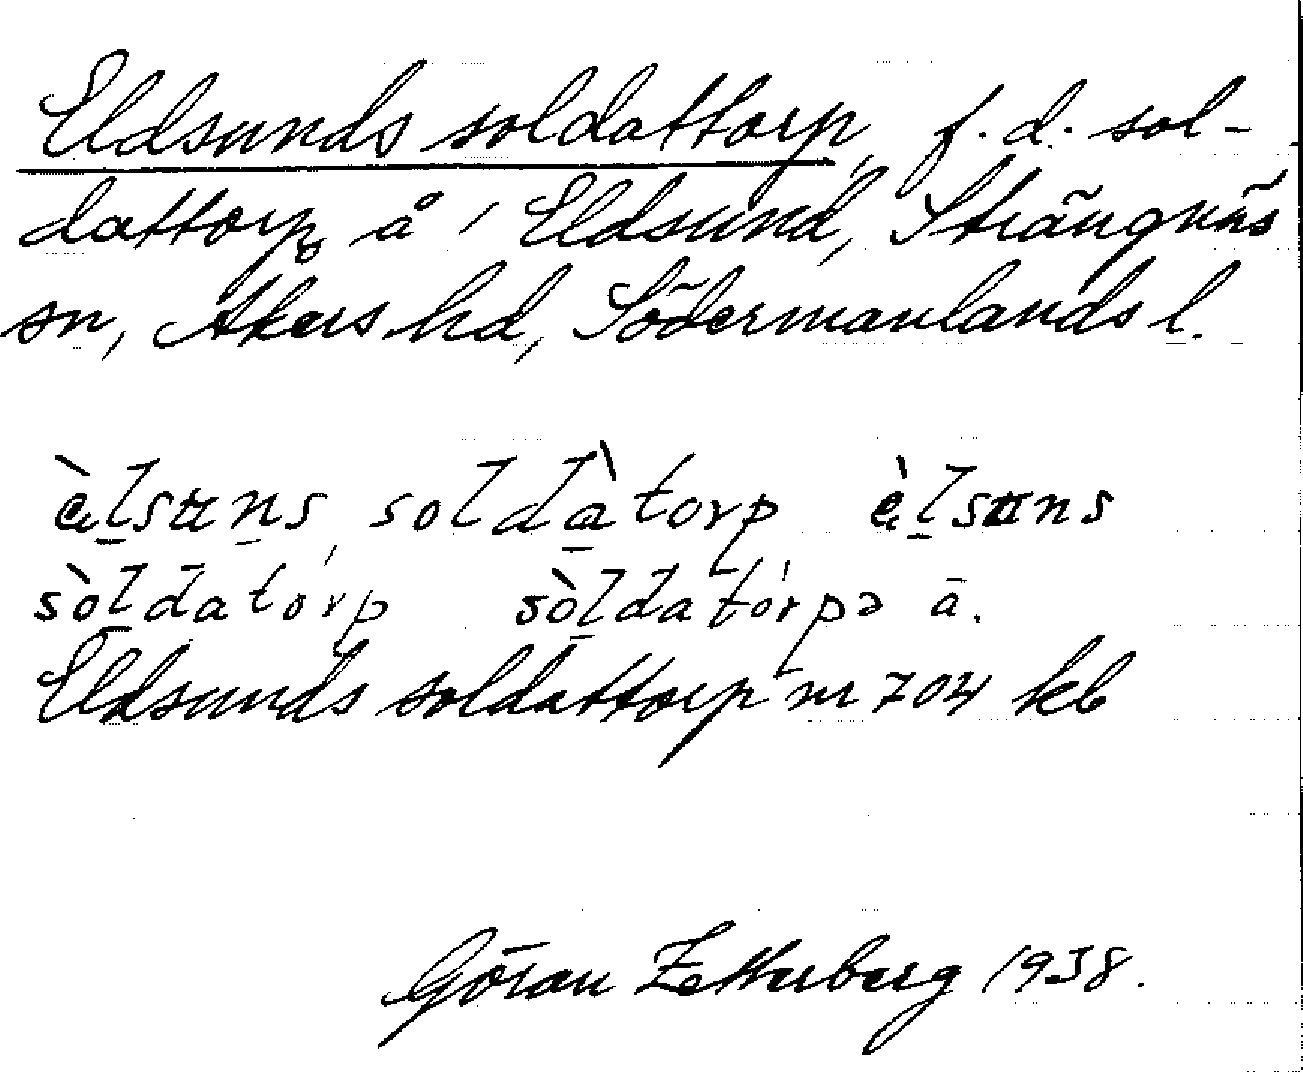 Eldsunds soldattorp, f.d. sol-
dattorp å 1 Eldsund, Strängnäs
sn, Åkers hd, Södermanlands l.
èlsuns soldàtorp èlsuns
sòldatórp sòldatórpə ā.
Eldsunds soldattorp nr 704 kb
Göran Zetterberg 1938.